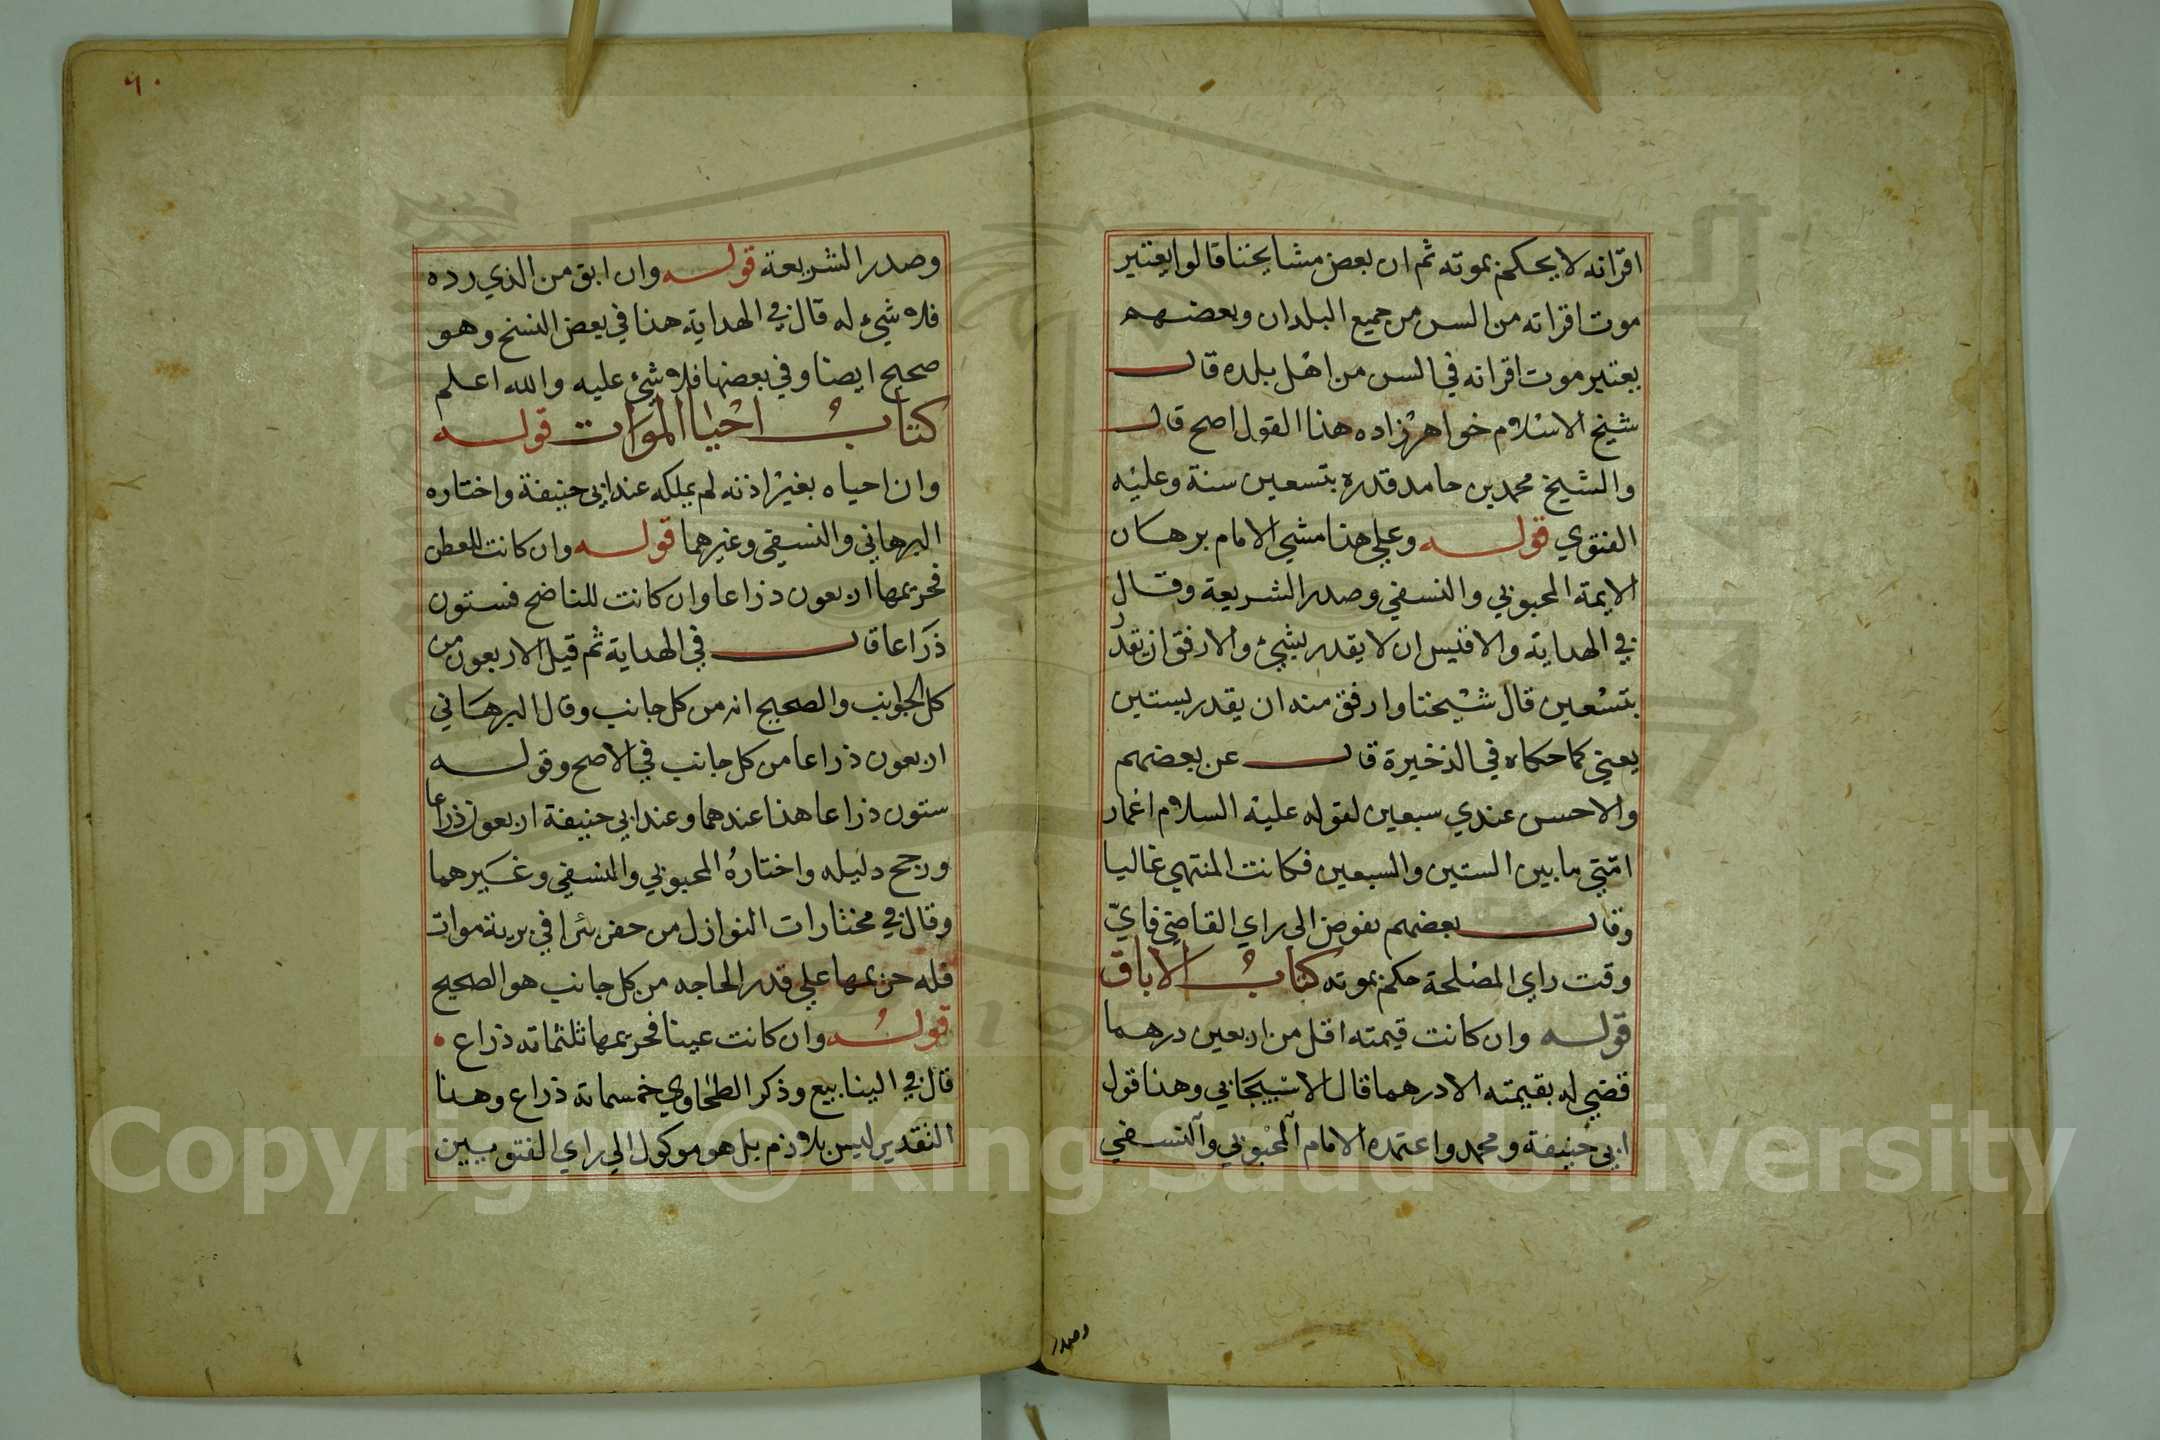 اقرانه لا يحكم بموته ثم ان بعض مشايخنا قالوا يعتبر
موت اقرانه من السن من جميع البلدان وبعضهم
يعتبر موت اقرانه في السن من اهل بلده قال
شيخ الاسلام خواهر زاده هذا القول اصح قال
والشيخ محمد بن حامد قدره بتسعين سنة وعليه
الفتوي قوله وعلي هذا مشي الامام برهان
الايمة المحبوبي والنسفي وصدر الشريعة وقال
في الهداية والاقيس ان لا يقدر بشيء والارفق ان يقدر
بتسعين قال شيخنا وارفق منه ان يقدر بستين
يعني كما حكاه في الذخيرة قال عن بعضهم
والاحسن عندي سبعين لقوله عليه السلام اعمار
امتي ما بين الستين والسبعين فكانت المنتهي غالبا
وقال بعضهم يفوض الي راي القاضي فاي
وقت راي المصلحة حكم بموته كتاب الاباق
قوله وان كانت قيمته اقل من اربعين درهما
قضي له بقيمته الا درهما قال الاسبيجابي وهذا قول
ابي حنيفة ومحمد واعتمده الامام المحبوبي والنسفي
وصدر
٦٠
وصدر الشريعة قوله وان ابق من الذي رده
فلا شيء له قال في الهداية هذا في بعض النسخ وهو
صحيح ايضا وفي بعضها فلا شيء عليه والله اعلم
كتاب احيا الموات قوله
وان احياه بغير اذنه لم يملكه عند ابي حنيفة واختاره
البرهاني والنسفي وغيرهما قوله وان كانت للعطن
فحريمها اربعون ذراعا وان كانت للناضح فستون
ذراعا قال في الهداية ثم قيل الاربعون من
كل الجوانب والصحيح انه من كل جانب وقال البرهاني
اربعون ذراعا من كل جانب في الاصح وقوله
ستون ذراعا هذا عندهما وعند ابي حنيفة اربعون ذراعا
ورجح دليله واختاره المحبوبي والنسفي وغيرهما
وقال في مختارات النوازل من حفر بئرا في برية موات
فله حريمها علي قدر الحاجه من كل جانب هو الصحيح
قوله وان كانت عينا فحريمها ثلثمائه ذراع
قال في الينابيع وذكر الطحاوي خمسمائه ذراع وهذا
التقدير ليس بلازم بل هو موكول الي راي المفتويين
Copyright © King Saud University